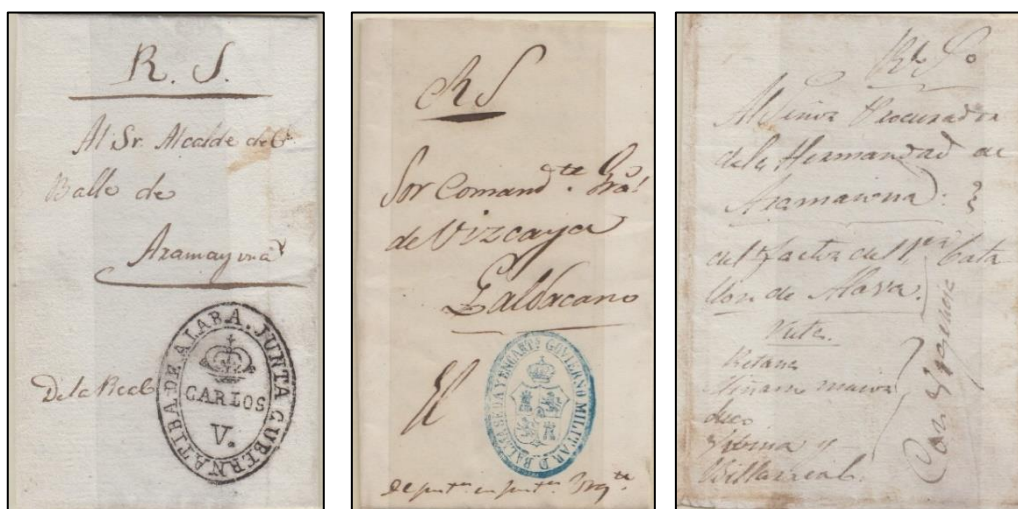 R. S.
Al Sr. Alcalde del
Balle de
Aramayona
De la Real
JUNTA GUBERNATIBA. DE ALABA.
CARLOS
V.
RS
Sor Comandte. Gral
de Vizcaya
Galdacano
El
GOVIERNO MILITAR D BALMASEDA Y ENCARTs
Rl So
Al Señor Procurador
dela Hermandad de
Aramaiona
del factor del 1er Bata
llon de Alava.
Retana
Miñano maior
Urbina y
Villarreal
Con Urgencia